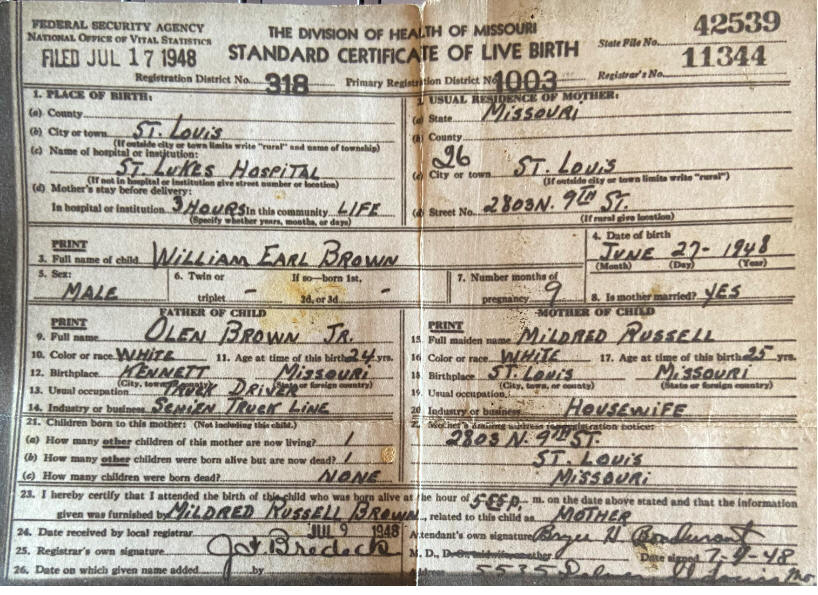 FEDERAL SECURITY AGENCY
NATIONAL OFFICE OF VITAL STATISTICS
FILED JUL 17 1948
THE DIVISION OF HEALTH OF MISSOURI
STANDARD CERTIFICATE OF LIVE BIRTH
State File No. 42539
Registration District No. 318 Primary Registration District No. 1003 Registrar's No. 11344
1. PLACE OF BIRTH:
(a) County
(b) City or town ST. LOUIS
(If outside city or town limits write "rural" and name of township)
(c) Name of hospital or institution:
ST. LUKES HOSPITAL
(If not in hospital or institution give street number or location)
(d) Mother's stay before delivery:
In hospital or institution 3 HOURS In this community LIFE
(Specify whether years, months, or days)
2. USUAL RESIDENCE OF MOTHER:
(a) State MISSOURI
(b) County
26
(c) City or town ST. LOUIS
(If outside city or town limits write "rural")
(d) Street No. 2803 N. 9TH ST.
(If rural give location)
PRINT
3. Full name of child WILLIAM EARL BROWN
4. Date of birth
JUNE 27- 1948
(Month) (Day) (Year)
5. Sex: MALE
6. Twin or triplet - If so—born 1st, 2d, or 3d -
7. Number months of pregnancy 9
8. Is mother married? YES
FATHER OF CHILD
PRINT
9. Full name OLEN BROWN JR.
10. Color or race WHITE 11. Age at time of this birth 24 yrs.
12. Birthplace KENNETT MISSOURI
(City, town, or county) (State or foreign country)
13. Usual occupation TRUCK DRIVER
14. Industry or business TRUCK LINE
MOTHER OF CHILD
PRINT
15. Full maiden name MILDRED RUSSELL
16 Color or race WHITE 17. Age at time of this birth 25 yrs.
18 Birthplace ST. LOUIS MISSOURI
(City, town, or county) (State or foreign country)
19. Usual occupation
20 Industry or business HOUSEWIFE
21. Children born to this mother: (Not including this child.)
(a) How many other children of this mother are now living? 1
(b) How many other children were born alive but are now dead? 1
(c) How many children were born dead? NONE
2. Mother's mailing address registration notice:
2803 N. 9TH ST.
ST. LOUIS
MISSOURI
23. I hereby certify that I attended the birth of this child who was born alive at the hour of m. on the date above stated and that the information
given was furnished by MILDRED RUSSELL BROWN, related to this child as MOTHER
24. Date received by local registrar JUL 9 1948
Attendent's own signature
25. Registrar's own signature
M. D., Date signed 7-9-48
26. Date on which given name added by
Address 5535